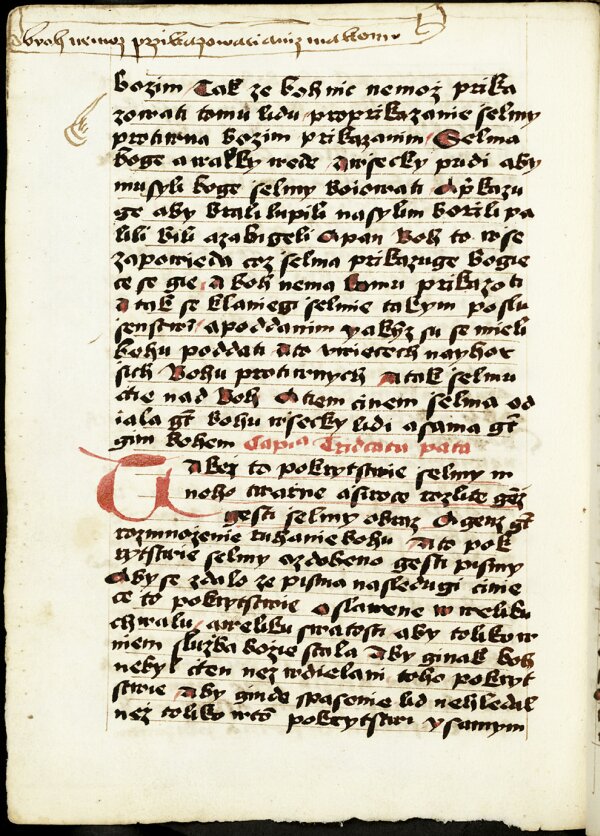 bozim Tak ze boh nic nemoz prika
zowati tomu lidu proprikazanie selmy
protiwna bozim prikazanim Selma
boge a walky wede A wsecky pudi aby
musyli boge selmy boiowati A prikazu
ge aby brali lupili nasylim borili pa
lili bili a zabigeli A pan Boh to wse
zapowieda coz selma prikazuge bogie
ce se gie A boh nema komu prikazoti
A tak se klaniegi selmie takym poslu
senstwi a poddanim yakyz su se mieli
bohu poddati A to wwiecech nayhor
sich Bohu protiwnych A tak selmu
ctie nad Boh A tiem cinem selma od
iala gt bohu wsecky lidi a sama gt
gim bohem Capia Tridcata pata
Takez to pokrytstwie selmy m
noho twarne a siroce rozlite gez
gesti selmy obraz A genz gt
rozmnozenie ruhanie bohu A to pok
rytstwie selmy ozdobeno gesti pismy
Aby se zdalo ze pisma nasledugi cinie
ce to pokrytstwie A slawene w weliku
chwalu a weliku swatosti aby tolikow
niem sluzba bozie stala Aby ginak boh
nebyl cten nez wdielani toho pokryt
stwie Aby ginde spasenie lid nehledal
nez toliko wto pokrytstwi y samym